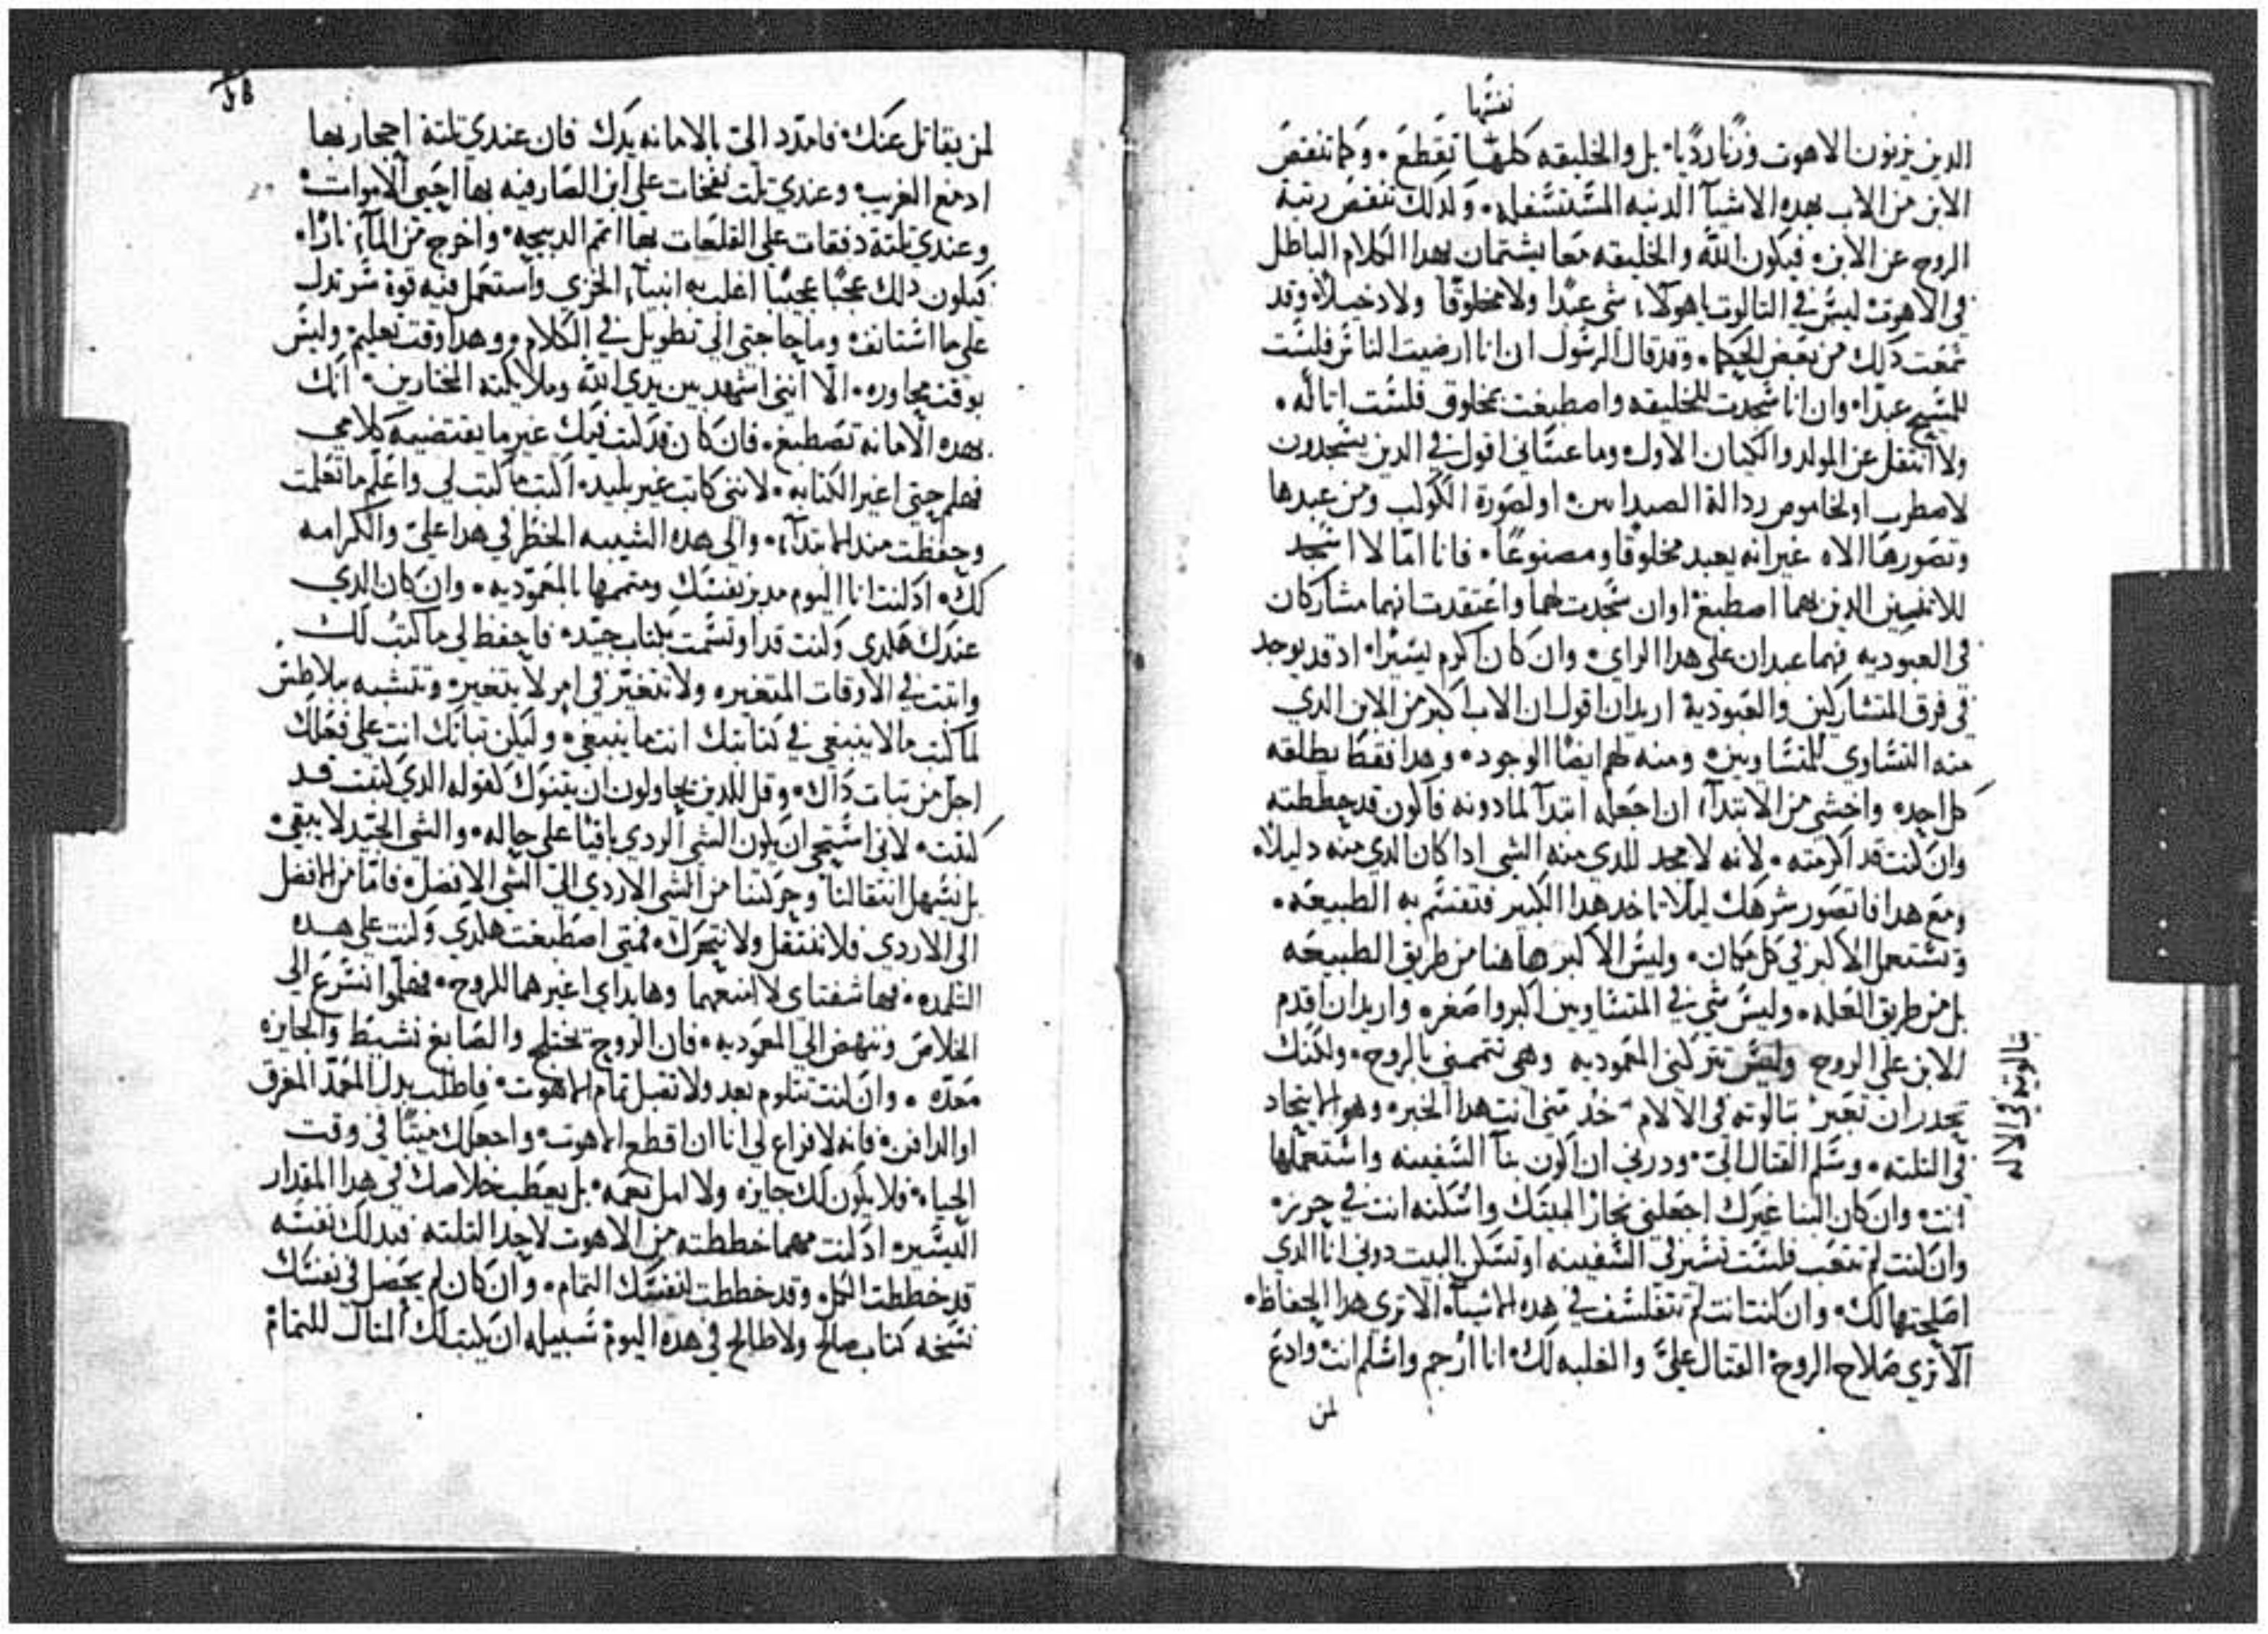 نفسها
الدين يزنون الاهوت وزنا رديا. بل والخليقه كلها تقطع. وكما تنقص
الابن من الاب بهده الاشيآ الدنيه المستسفله. ولدلك تنقص رتبة
الروح عن الابن. فيكون الله والخليقه معا يشتمان بهدا الكلام الباطل
في الاهوت ليس في التالوت ياهولاء شي عبدا ولا مخلوقا ولا دخيلاً وقد
سمعت دلك من بعض الحكما. وقد قال الرسول ان انا ارضيت الناس فلست
للمسيح عبدا. وان انا سجدت للخليقه واصطبغت بمخلوق فلست اتاله.
ولا انتقل عن المولد والكيان الاول. وما عساني اقول في الدين يسجدون
لاصطرب او لخاموص ردالة الصيدانيين. او لصورة الكوكب ومن عبدها
وتصورها الاه غير انه يعبد مخلوقا ومصنوعا. فانا اما لا اسجد
للاتنين الدين بهما اصطبغ اوان سجدت لهما واعتقدت انهما مشاركان
في العبوديه فهما عبدان على هدا الراي. وان كان اكرم يسيرا. اد قد يوجد
في فرق المتشاركين والعبودية اريد ان اقول ان الاب اكبر من الابن الدي
منه التساوي للمتساويين. ومنه لهم ايضا الوجود. وهدا فقط يطلقه
كل احد. واخشى من الابتدآء ان اجعله ابتدآ لما دونه فاكون قد حططته
وان كنت قد اكرمته. لانه لا مجد للدي منه الشي ادا كان الدي منه دليلاً.
ومع هدا فاتصور شرهك ليلا تاخد هدا الكبير فتقسم به الطبيعه.
وتستعمل الاكبر في كل مكان. وليس الاكبر هاهنا من طريق الطبيعه
بل من طريق العله. وليس شي في المتساويين اكبر واصغر. واريد ان اقدم
للابن على الروح وليس تتركني المعموديه وهي تتممني بالروح. ولكنك
تحدر ان تعير بتالوته في الالام خد مني انت هدا الخبر. وهو الاتحاد
في التلته. وسلم القتال الي. ودرني ان اكون بنآ السفينه واستعملها
انت. وان كان البنا غيرك اجعلني نجار البيتك واسكنه انت في حريزه
وان كنت لم تتعب فلست تسير في السفينه او تسكن البيت دوني انا الدي
اصلحتها لك. وان كنت انت لم تتفلسف في هده الاشيآء. الا ترى هدا الحفاظ.
الا تري صلاح الروح القتال علي والغلبه لك. انا ارجم واسلم انت وادع
لمن
بتالوتيه في الاله
لمن يقاتل عنك. فامدد الي بالامانه يدك فان عندي تلتة احجار بها
ادمغ الغريب. وعندي تلت نفخات على ابن الصارفيه بها احيي الاموات.
وعندي تلتة دفقات على القلعات بها اتمم الدبيحه. واخرج من المآء نارا.
فيكون دلك عجبا عجيبا اغلب به انبيآء الخزي واستعمل فيه قوة سر تدل
على ما استانف. وما حاجتي الي تطويل في الكلام. وهدا وقت تعليم. وليس
بوقت محاوره. الا انني اشهد بين يدي الله وملايكته المختارين. انك
بهده الامانه تصطبغ. فان كان قد كتب فيك غير ما يقتضيه كلامي
فهلم حتى اغير الكتابه. لانني كاتب غير بليد. اكتب ما كتب لي واعلم ما تعلمت
وحفظت مند الابتدآء. والي هده الشيبه الخطر في هدا علي والكرامه
لك. اد كنت انا اليوم مدبر نفسك ومتممها بالمعموديه. وان كان الدي
عندك هكدي وكنت قد اوتسمت بكتاب جيد. فاحفظ لي ما كتب لك
واتبت في الاوقات المتغيره ولا تتغير في امر لا يتغير. وتتشبه ببلاطس
لما كتب مالا ينبغي في كتابتك انت ما ينبغي. وليكن تباتك انت على فعلك
اجل من تبات داك. وقل للدين يحاولون ان يتنوك كقوله الدي كتبت قد
كتبت. لاني استحي ان يكون الشي الردي باقيا على حاله. والشي الجيد لا يبقى.
بل نسهل انتقالنا وحركتنا من الشي الاردي الي الشي الافضل. فاما من الافضل
الى الاردي فلا ننتقل ولا نتحرك. فمتى اصطبغت هكدي وكنت على هده
التلمده. فها شفتاي لا امنعهما وها يداي اعيرهما للروح. فهلموا نسرع الى
الخلاص وننهض الي المعموديه. فان الروح تختلج والصابغ نشيط والجايزه
معده. وان كنت تتلوم بعد ولا تقبل تمام الاهوت. فاطلب بدل المعمد المغرق
او الدافن. فانه لا فراغ لي انا ان اقطع الاهوت. واجعلك ميتا في وقت
الحياه. فلا يكون لك جايزه ولا امل نعمه. بل يعطب خلاصك في هدا المقدار
اليسير. اد كنت مهما حططته من الاهوت لاحد التلته فبدلك نفسه
قد حططت الكل. وقد حططت لنفسك التمام. وان كان لم يحصل في نفسك
نسخه كتاب صالح ولا طالح في هده اليوم سبيله ان يكتب لك المتال للتمام